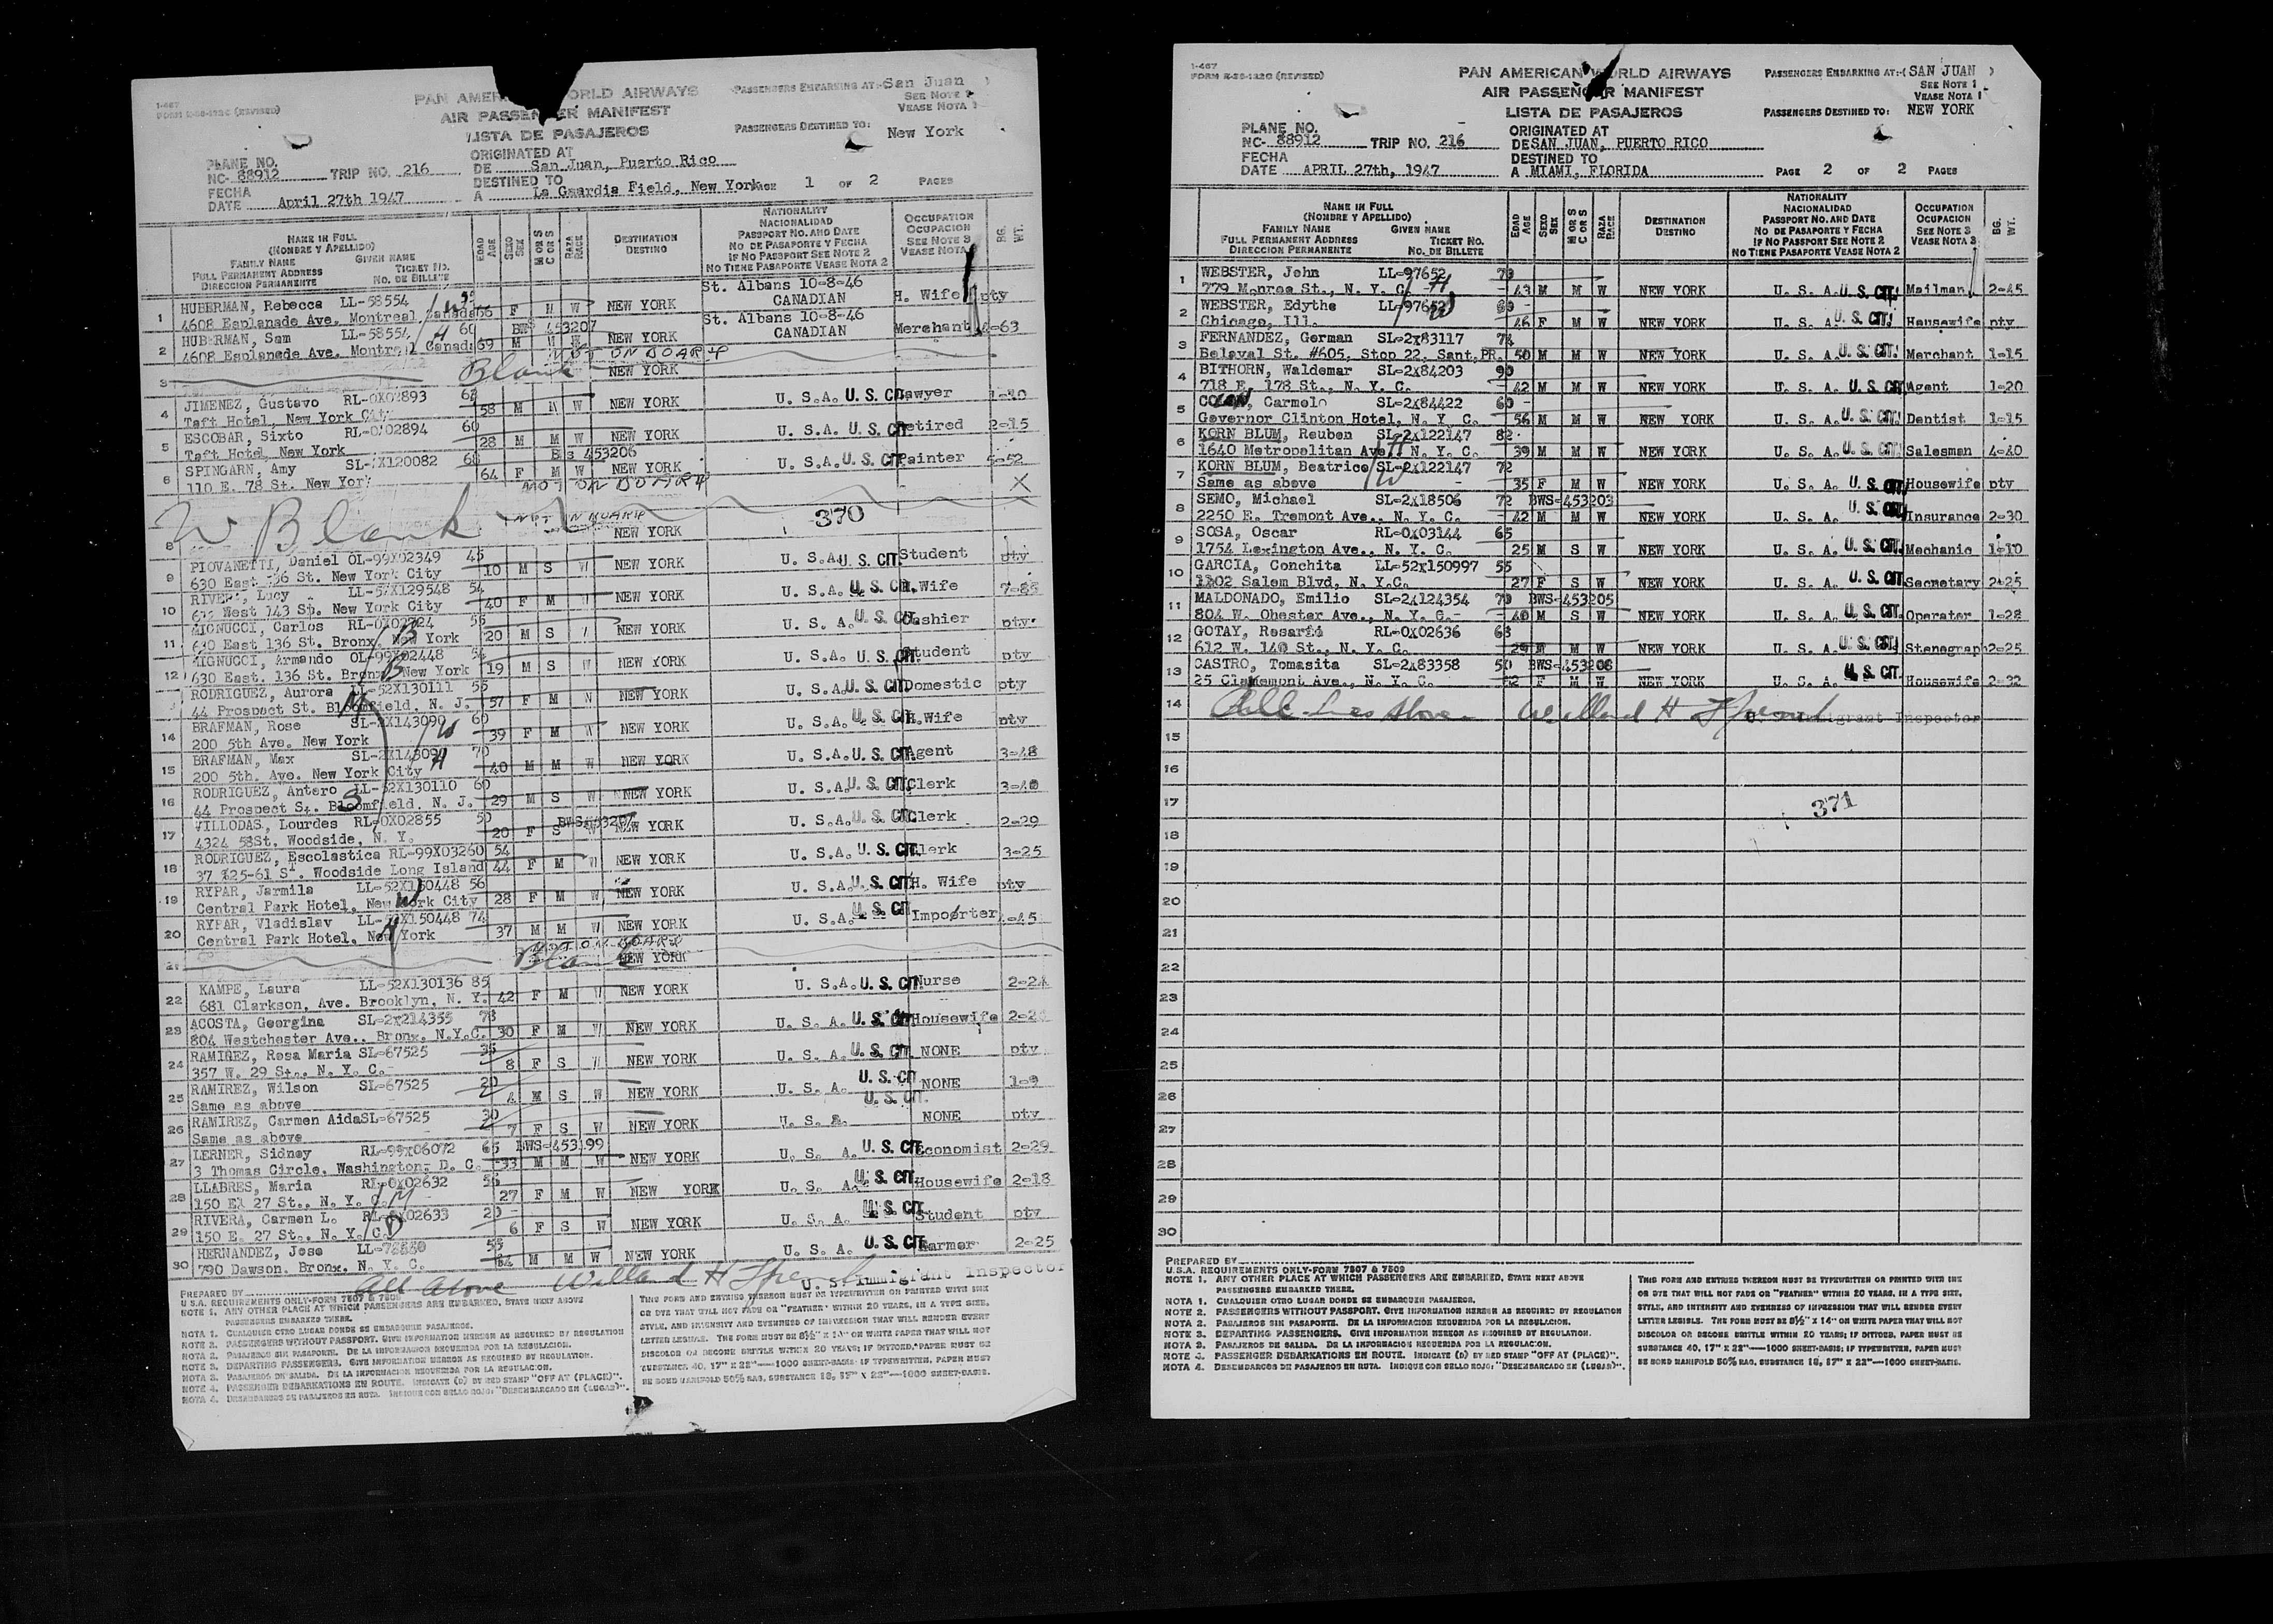 1-467
FORM R-36-122C (REVISED)
PAN AMERICAN WORLD AIRWAYS
AIR PASSENGER MANIFEST
LISTA DE PASAJEROS
PASSENGERS EMBARKING AT: San Juan
SEE NOTE 1
VEASE NOTA 1
PASSENGERS DESTINED TO: New York
PLANE NO.
NC- 88912 TRIP NO. 216
FECHA
DATE April 27th 1947
ORIGINATED AT
DE San Juan, Puerto Rico
DESTINED TO
A La Guardia Field, New York
PAGE 1 OF 2 PAGES
NAME IN FULL
(NOMBRE Y APELLIDO)
FAMILY NAME GIVEN NAME
FULL PERMANENT ADDRESS TICKET NO.
DIRECCION PERMANENTE NO. DE BILLETE
EDAD AGE
SEXO SEX
M OR S
C OR S
RAZA RACE
DESTINATION
DESTINO
NATIONALITY
NACIONALIDAD
PASSPORT NO. AND DATE
NO DE PASAPORTE Y FECHA
IF NO PASSPORT SEE NOTE 2
NO TIENE PASAPORTE VEASE NOTA 2
OCCUPATION
OCUPACION
SEE NOTE 3
VEASE NOTA 3
BG. WT.
1 HUBERMAN, Rebecca LL-58554 St. Albans 10-8-46
4608 Esplanade Ave. Montreal Canada F M W NEW YORK CANADIAN H. Wife pty
2 HUBERMAN, Sam LL-58554 60 BWS 453207 St. Albans 10-8-46
4608 Esplanade Ave. Montreal Canada 69 M M W NEW YORK CANADIAN Merchant 4-63
NOT ON BOARD
3 Blank NEW YORK
4 JIMENEZ, Gustavo RL-0X02893
Taft Hotel, New York City 58 M M W NEW YORK U.S.A. U. S. CIT. Lawyer
5 ESCOBAR, Sixto RL-0X02894 60
Taft Hotel, New York 28 M M W NEW YORK U.S.A. U. S. CIT. Retired 2-15
6 SPINGARN, Amy SL-2X120082 68 BWS 453206
110 E. 78 St. New York 64 F M W NEW YORK U.S.A. U. S. CIT. Painter 5-52
NOT ON BOARD X
W Blank NOT ON BOARD 370
8 NEW YORK
9 PIOVANETTI, Daniel OL-99X02349 45
630 East 136 St. New York City 10 M S W NEW YORK U. S.A. U. S. CIT. Student pty
10 RIVERA, Lucy LL-52X129548 54
West 143 St. New York City 40 F M W NEW YORK U. S.A. U. S. CIT. H. Wife
11 MIGNUCCI, Carlos RL-0X02724
630 East 136 St. Bronx, New York 20 M S W NEW YORK U. S. A. U. S. CIT. Cashier pty.
12 MIGNUCCI, Armando OL-99X02448
630 East. 136 St. Bronx New York 19 M S W NEW YORK U. S.A. U. S. CIT. Student pty
RODRIGUEZ, Aurora LL-52X130111 55
44 Prospect St. Bloomfield, N. J. 57 F M W NEW YORK U. S.A. U. S. CIT. Domestic pty
14 BRAFMAN, Rose SL-2X143090 60
200 5th Ave. New York 39 F M W NEW YORK U. S.A. U. S. CIT. H.Wife pty
15 BRAFMAN, Max SL-2X143090 70
200 5th. Ave. New York City 40 M M W NEW YORK U. S.A. U. S. CIT. Agent 3-48
16 RODRIGUEZ, Antero LL-52X130110 60
44 Prospect St. Bloomfield, N. J. 29 M S W NEW YORK U. S.A. U. S. CIT. Clerk 3-40
17 VILLODAS, Lourdes RL-0X02855 50
4324 58St. Woodside, N. Y. 20 F S W NEW YORK U. S.A. U. S. CIT. Clerk 2-29
18 RODRIGUEZ, Escolastica RL-99X03260 54
37 25-61 St. Woodside Long Island 44 F M W NEW YORK U. S.A. U. S. CIT. Clerk 3-25
19 RYPAR, Jarmila LL-52X150448 56
Central Park Hotel, New York City 28 F M W NEW YORK U. S.A. U. S. CIT. H. Wife pty
20 RYPAR, Vladislav LL-52X150448 74
Central Park Hotel, New York 37 M M W NEW YORK U. S.A. U. S. CIT. Importer
NOT ON BOARD
21 Blank NEW YORK
22 KAMPE, Laura LL-52X130136 85
681 Clarkson, Ave. Brooklyn, N. Y. 42 F M W NEW YORK U. S.A. U. S. CIT. Nurse 2-24
23 ACOSTA, Georgina SL-2X214355
804 Westchester Ave., Bronx, N.Y.C. 30 F M W NEW YORK U. S. A. U. S. CIT. Housewife
24 RAMIREZ, Rosa Maria SL-67525 35
357 W. 29 St., N. Y. C. 8 F S W NEW YORK U. S. A. U. S. CIT. NONE pty
25 RAMIREZ, Wilson SL-67525 20
Same as above 4 M S W NEW YORK U. S. A. U. S. CIT. NONE 1-9
26 RAMIREZ, Carmen Aida SL-67525 30
Same as above 7 F S W NEW YORK U. S. A. U. S. CIT. NONE pty
27 LERNER, Sidney RL-99X06072 65 BWS-453199
3 Thomas Circle, Washington, D. C. 33 M M W NEW YORK U. S. A. U. S. CIT. Economist 2-29
28 LLABRES, Maria RL-0X02632 55
150 E. 27 St., N. Y. C. 27 F M W NEW YORK U. S. A. U. S. CIT. Housewife 2-18
29 RIVERA, Carmen L. RL-0X02633 20
150 E. 27 St., N. Y. C. 6 F S W NEW YORK U. S. A. U. S. CIT. Student pty
30 HERNANDEZ, Jose
790 Dawson. Bronx. N. Y. C. M M W NEW YORK U. S. A. U. S. CIT. Farmer 2-25
All Above Willand H U. S. Immigrant Inspector
PREPARED BY
U.S.A. REQUIREMENTS ONLY-FORM 7507 & 7509
NOTE 1. ANY OTHER PLACE AT WHICH PASSENGERS ARE EMBARKED, STATE NEXT ABOVE
PASSENGERS EMBARKED THERE.
NOTA 1. CUALQUIER OTRO LUGAR DONDE SE EMBARQUEN PASAJEROS.
NOTE 2. PASSENGERS WITHOUT PASSPORT. GIVE INFORMATION HEREON AS REQUIRED BY REGULATION
NOTA 2. PASAJEROS SIN PASAPORTE. DE LA INFORMACION REQUERIDA POR LA REGULACION.
NOTE 3. DEPARTING PASSENGERS. GIVE INFORMATION HEREON AS REQUIRED BY REGULATION.
NOTA 3. PASAJEROS DE SALIDA. DE LA INFORMACION REQUERIDA POR LA REGULACION.
NOTE 4. PASSENGER DEBARKATIONS EN ROUTE. INDICATE (D) BY RED STAMP "OFF AT (PLACE)".
NOTA 4. DESEMBARCOS DE PASAJEROS EN RUTA. INDIQUE CON SELLO ROJO: "DESEMBARCADO EN (LUGAR)".
THIS FORM AND ENTRIES THEREON MUST BE TYPEWRITTEN OR PRINTED WITH INK
OR DYE THAT WILL NOT FADE OR "FEATHER" WITHIN 20 YEARS, IN A TYPE SIZE,
STYLE, AND INTENSITY AND EVENNESS OF IMPRESSION THAT WILL RENDER EVERY
LETTER LEGIBLE. THE FORM MUST BE 8½" X 14" ON WHITE PAPER THAT WILL NOT
DISCOLOR OR BECOME BRITTLE WITHIN 20 YEARS; IF DITTOED, PAPER MUST BE
SUBSTANCE 40, 17" X 28"—1000 SHEET-BASIS; IF TYPEWRITTEN, PAPER MUST
BE BOND MANIFOLD 50% RAG, SUBSTANCE 18, 17" X 22"—1000 SHEET-BASIS.
1-467
FORM R-36-122C (REVISED)
PAN AMERICAN WORLD AIRWAYS
AIR PASSENGER MANIFEST
LISTA DE PASAJEROS
PASSENGERS EMBARKING AT: (SAN JUAN )
SEE NOTE 1
VEASE NOTA 1
PASSENGERS DESTINED TO: NEW YORK
PLANE NO.
NC- 88912 TRIP NO. 216
FECHA
DATE APRIL 27th, 1947
ORIGINATED AT
DE SAN JUAN, PUERTO RICO
DESTINED TO
A MIAMI, FLORIDA
PAGE 2 OF 2 PAGES
NAME IN FULL
(NOMBRE Y APELLIDO)
FAMILY NAME GIVEN NAME
FULL PERMANENT ADDRESS TICKET NO.
DIRECCION PERMANENTE NO. DE BILLETE
EDAD AGE
SEXO SEX
M OR S
C OR S
RAZA RACE
DESTINATION
DESTINO
NATIONALITY
NACIONALIDAD
PASSPORT NO. AND DATE
NO DE PASAPORTE Y FECHA
IF NO PASSPORT SEE NOTE 2
NO TIENE PASAPORTE VEASE NOTA 2
OCCUPATION
OCUPACION
SEE NOTE 3
VEASE NOTA 3
BG. WT.
1 WEBSTER, John LL-97652
779 Monroe St., N. Y. C. H 43 M M W NEW YORK U. S. A. U. S. CIT. Mailman 2-45
2 WEBSTER, Edythe LL-97652
Chicago, Ill. W 46 F M W NEW YORK U. S. A. U. S. CIT. Housewife pty
3 FERNANDEZ, German SL-2X83117
Belaval St. #605, Stop 22, Sant, PR. 50 M M W NEW YORK U. S. A. U. S. CIT. Merchant 1-15
4 BITHORN, Waldemar SL-2X84203 90
718 E. 178 St., N. Y. C. 42 M M W NEW YORK U. S. A. U. S. CIT. Agent 1-20
5 COLON, Carmelo SL-2X84422 60
Governor Clinton Hotel, N. Y. C. 56 M M W NEW YORK U. S. A. U. S. CIT. Dentist 1-15
6 KORN BLUM, Reuben SL-2X122147 82
1640 Metropolitan Ave. N. Y. C. 39 M M W NEW YORK U. S. A. U. S. CIT. Salesman 4-40
7 KORN BLUM, Beatrice SL-2X122147 72
Same as above W 35 F M W NEW YORK U. S. A. U. S. CIT. Housewife pty
8 SEMO, Michael SL-2X18506 72 BWS-453203
2250 E. Tremont Ave., N. Y. C. 42 M M W NEW YORK U. S. A. U. S. CIT. Insurance 2-30
9 SOSA, Oscar RL-0X03144 65
1754 Lexington Ave., N. Y. C. 25 M S W NEW YORK U. S. A. U. S. CIT. Mechanic 1-10
10 GARCIA, Conchita LL-52x150997 55
1302 Salem Blvd. N. Y.C. 27 F S W NEW YORK U. S. A. U. S. CIT. Secretary 2-25
11 MALDONADO, Emilio SL-2X124354 70 BWS-453205
804 W. Chester Ave., N. Y. C. 40 M S W NEW YORK U. S. A. U. S. CIT. Operator 1-28
12 GOTAY, Rosario RL-0X02636 63
612 W. 140 St., N. Y. C. 29 M W NEW YORK U. S. A. U. S. CIT. Stenograph 2-25
13 CASTRO, Tomasita SL-2X83358 50 BWS-453208
25 Claremont Ave., N. Y. C. F M W NEW YORK U. S. A. U. S. CIT. Housewife 2-32
14 All Lines Above Willand H Immigrant Inspector
15
16
17 371
18
19
20
21
22
23
24
25
26
27
28
29
30
PREPARED BY
U.S.A. REQUIREMENTS ONLY-FORM 7507 & 7509
NOTE 1. ANY OTHER PLACE AT WHICH PASSENGERS ARE EMBARKED, STATE NEXT ABOVE
PASSENGERS EMBARKED THERE.
NOTA 1. CUALQUIER OTRO LUGAR DONDE SE EMBARQUEN PASAJEROS.
NOTE 2. PASSENGERS WITHOUT PASSPORT. GIVE INFORMATION HEREON AS REQUIRED BY REGULATION
NOTA 2. PASAJEROS SIN PASAPORTE. DE LA INFORMACION REQUERIDA POR LA REGULACION.
NOTE 3. DEPARTING PASSENGERS. GIVE INFORMATION HEREON AS REQUIRED BY REGULATION.
NOTA 3. PASAJEROS DE SALIDA. DE LA INFORMACION REQUERIDA POR LA REGULACION.
NOTE 4. PASSENGER DEBARKATIONS EN ROUTE. INDICATE (D) BY RED STAMP "OFF AT (PLACE)".
NOTA 4. DESEMBARCOS DE PASAJEROS EN RUTA. INDIQUE CON SELLO ROJO: "DESEMBARCADO EN (LUGAR)".
THIS FORM AND ENTRIES THEREON MUST BE TYPEWRITTEN OR PRINTED WITH INK
OR DYE THAT WILL NOT FADE OR "FEATHER" WITHIN 20 YEARS, IN A TYPE SIZE,
STYLE, AND INTENSITY AND EVENNESS OF IMPRESSION THAT WILL RENDER EVERY
LETTER LEGIBLE. THE FORM MUST BE 8½" X 14" ON WHITE PAPER THAT WILL NOT
DISCOLOR OR BECOME BRITTLE WITHIN 20 YEARS; IF DITTOED, PAPER MUST BE
SUBSTANCE 40, 17" X 28"—1000 SHEET-BASIS; IF TYPEWRITTEN, PAPER MUST
BE BOND MANIFOLD 50% RAG, SUBSTANCE 18, 17" X 22"—1000 SHEET-BASIS.